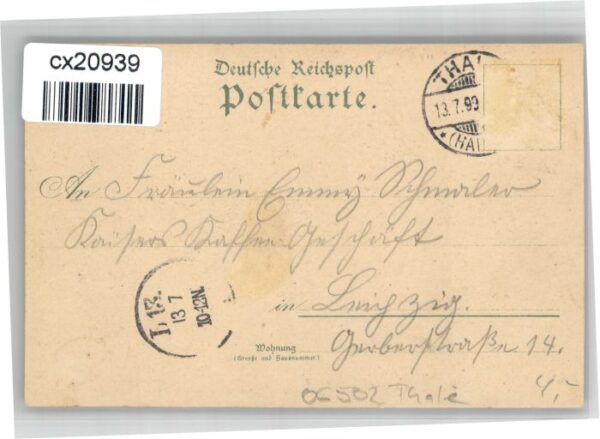 cx20939
Deutsche Reichspost
Postkarte.
THAL
13.7.99
*(HA
An Fräulein Emmy Schmaler
Kaisers Kaffee-Geschäft
L 13.
13 7
10-12N.
in Leipzig.
Wohnung
(Straße und Hausnummer)
Gerberstraße 14.
06502 Thale
4,-